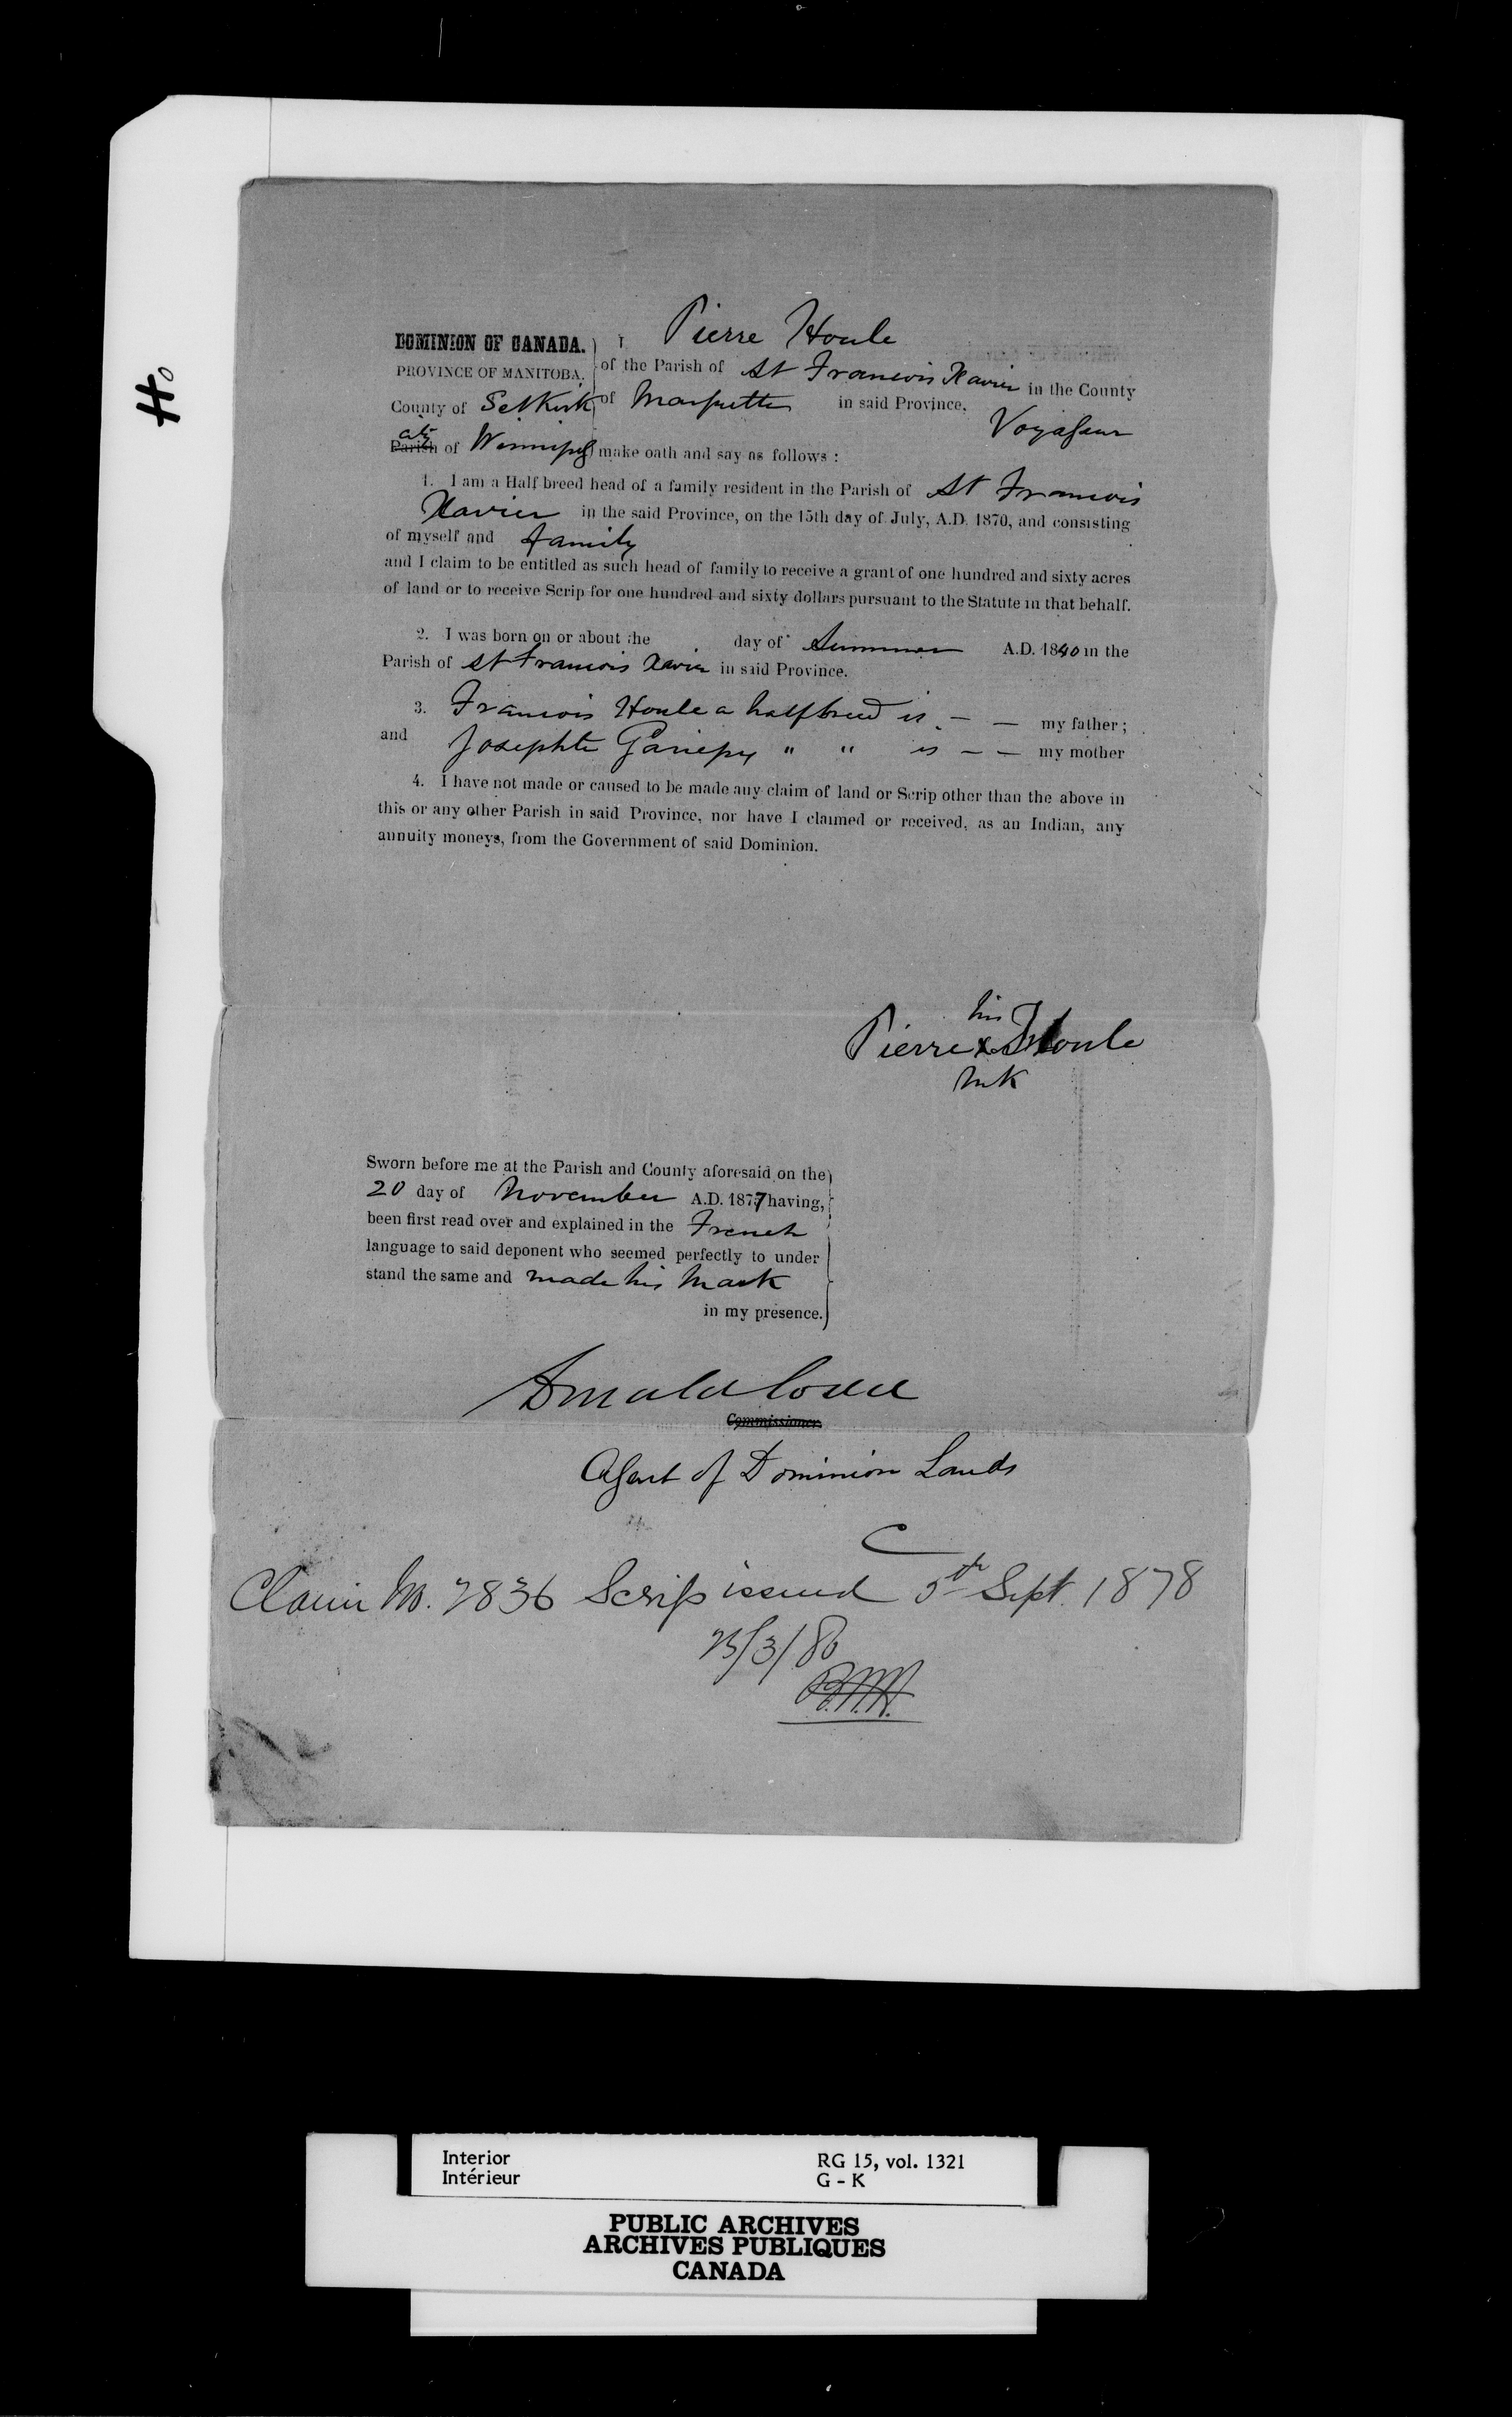 Ho
DOMINION OF CANADA.
PROVINCE OF MANITOBA.
County of Selkirk
city
Parish of Winnipeg
I, Pierre Houle
of the Parish of St Francois Xavier in the County
of Marquette in said Province, Voyageur
make oath and say as follows :
1. I am a Half breed head of a family resident in the Parish of St Francois
Xavier in the said Province, on the 15th day of July, A.D. 1870, and consisting
of myself and family
and I claim to be entitled as such head of family to receive a grant of one hundred and sixty acres
of land or to receive Scrip for one hundred and sixty dollars pursuant to the Statute in that behalf.
2. I was born on or about the day of Summer A.D. 1840 in the
Parish of St Francois Xavier in said Province.
3. Francois Houle a halfbreed is - - my father ;
and Josephte Gariepy " " is - - my mother
4. I have not made or caused to be made any claim of land or Scrip other than the above in
this or any other Parish in said Province, nor have I claimed or received, as an Indian, any
annuity moneys, from the Government of said Dominion.
his
Pierre x Houle
mk
Sworn before me at the Parish and County aforesaid on the
20 day of November A.D. 1877 having,
been first read over and explained in the French
language to said deponent who seemed perfectly to under
stand the same and made his mark
in my presence.
Commissioner.
Agent of Dominion Lands
C
Claim No. 2836 Scrip issued 5th Sept. 1878
Interior
Intérieur
RG 15, vol. 1321
G - K
PUBLIC ARCHIVES
ARCHIVES PUBLIQUES
CANADA